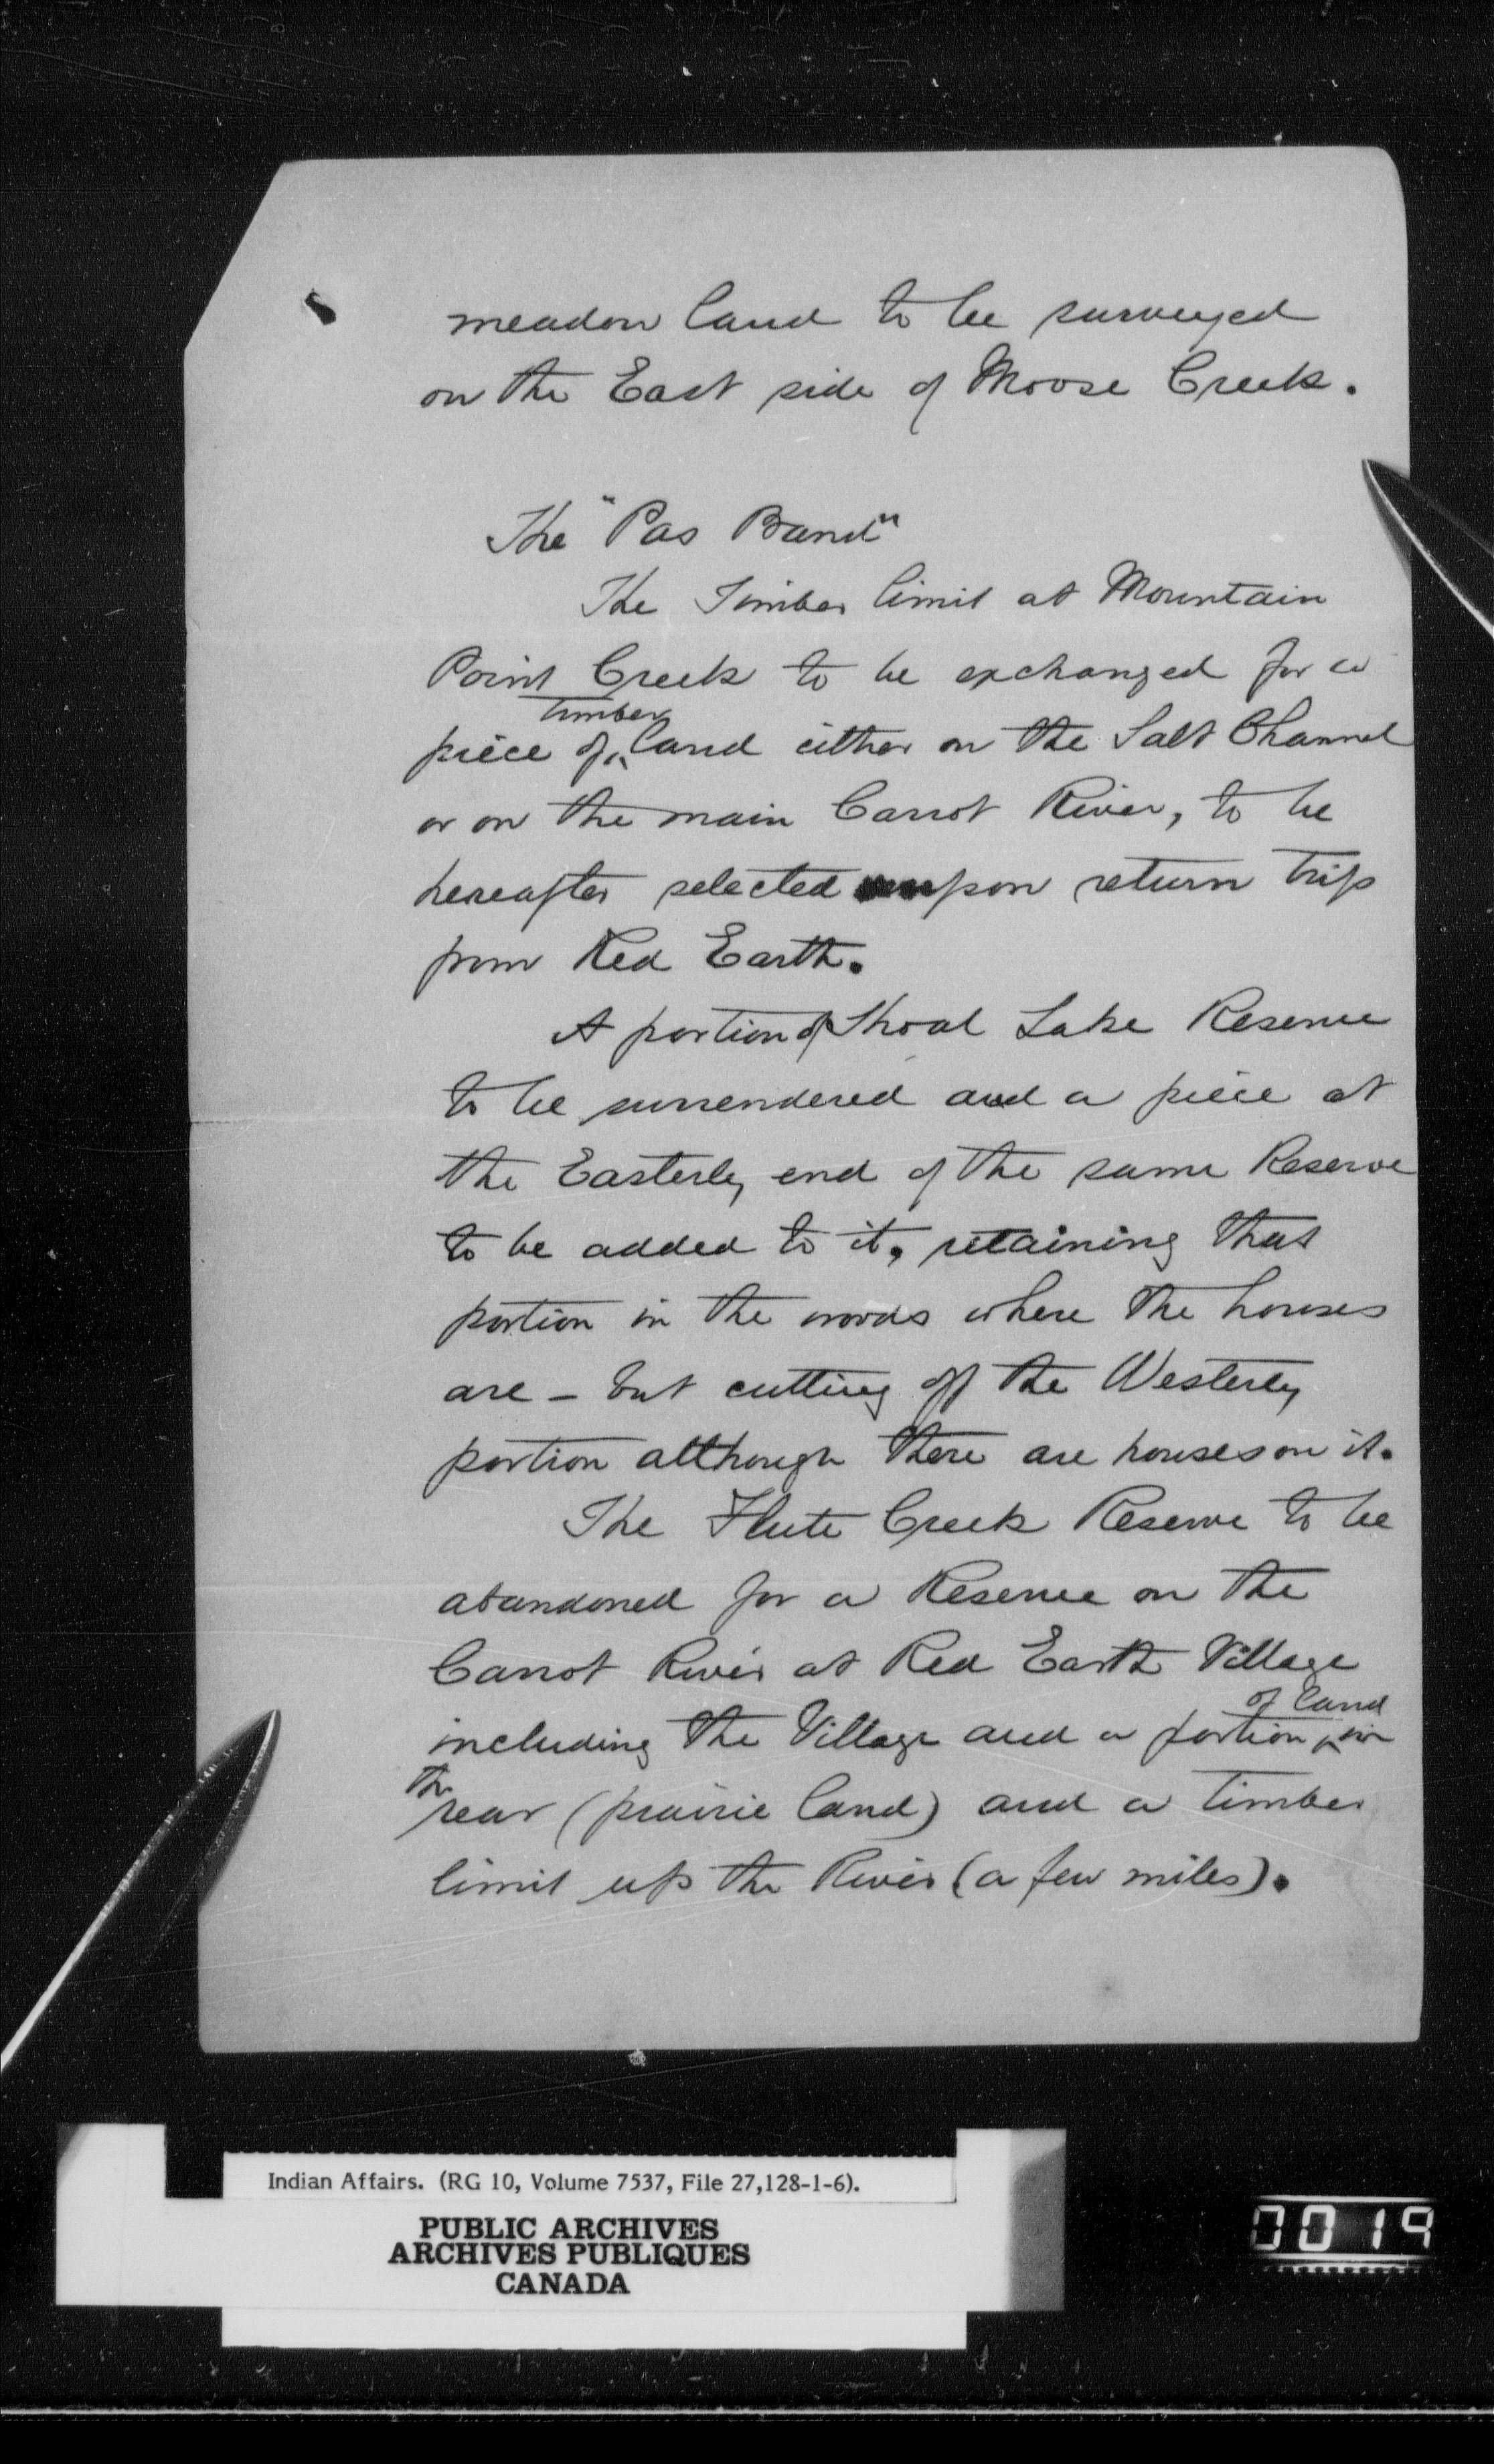 meadow land to be surveyed
on the East side of Moose Creek.
The "Pas Band"
The Timber limit at Mountain
Point Creek to be exchanged for a
timber
piece of land either on the Salt Channel
or on the main Carrot River, to be
hereafter selected upon return trip
from Red Earth.
A portion of Shoal Lake Reserve
to be surrendered and a piece at
the Easterly end of the same Reserve
to be added to it, retaining that
portion in the woods where the houses
are – but cutting off the Westerly
portion although there are houses on it.
The Flute Creek Reserve to be
abandoned for a Reserve on the
Carrot River at Red Earth Village
of land
including the Village and a portion in
the
rear (prairie land) and a timber
limit up the River (a few miles).
Indian Affairs. (RG 10, Volume 7537, File 27,128-1-6).
PUBLIC ARCHIVES
ARCHIVES PUBLIQUES
CANADA
0019